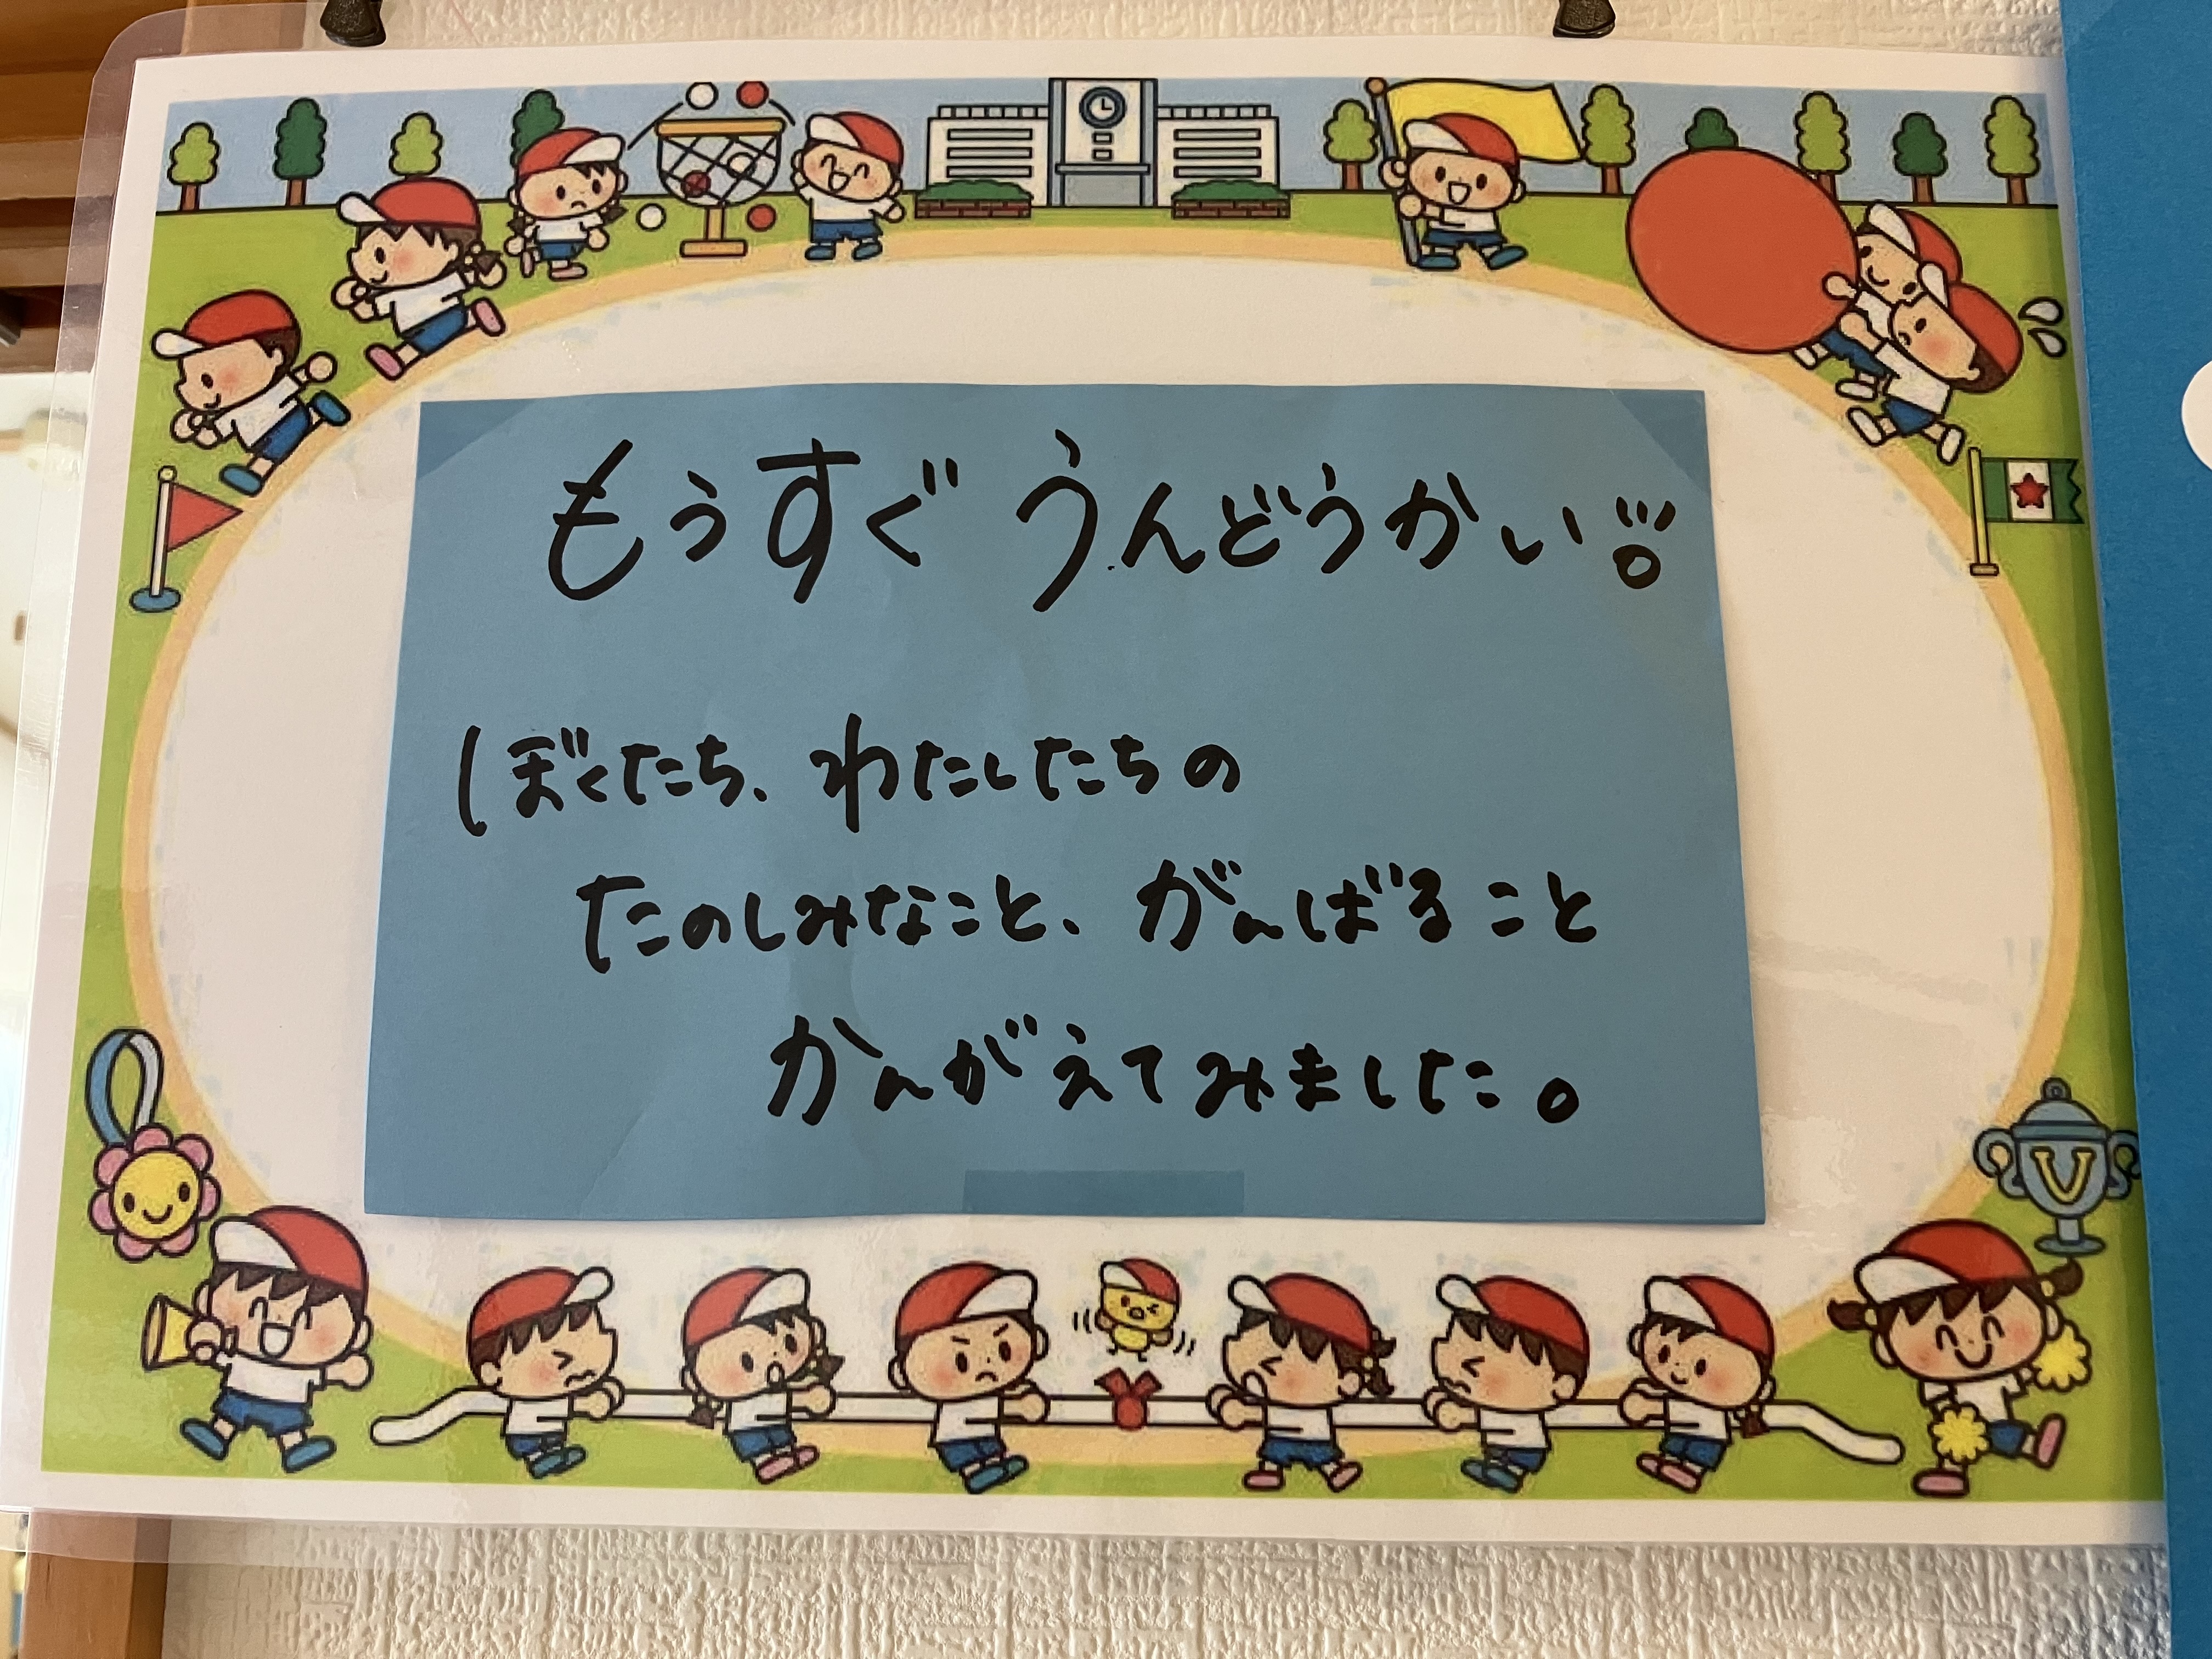 もうすぐ うんどうかい!!!
ぼくたち、わたしたちの
たのしみなこと、がんばること
かんがえてみました。
V